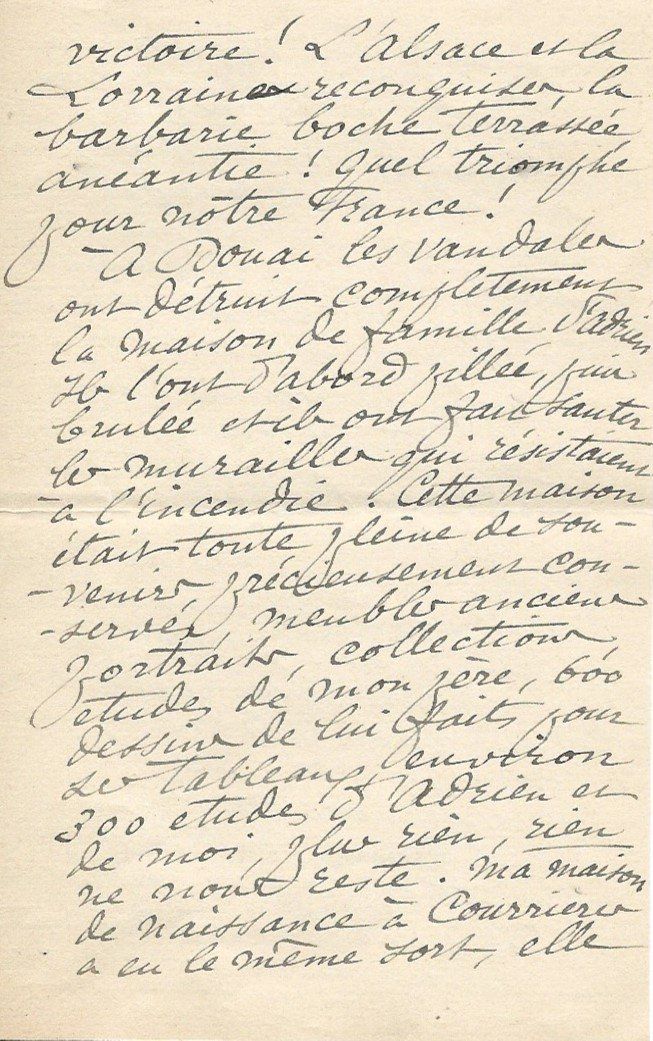 victoire! L'alsace et la
Lorraine reconquises, la
barbarie boche terrassée
anéantie! quel triomphe
pour nôtre France!
– A Douai les vandales
ont détruit complètement
la maison de famille d'adrien
ils l'ont d'abord pillée, puis
brulée et ils ont fait sauter
les murailles qui résistaient
à l'incendie. Cette maison
était toute pleine de sou-
-venirs précieusement con-
-servés, meubles anciens
portraits, collections,
etudes de mon père, 600
dessins de lui faits pour
ses tableaux, environ
300 etudes d'Adrien et
de moi, plus rien, rien
ne nous reste. ma maison
de naissance à Courrières
a eu le même sort, elle